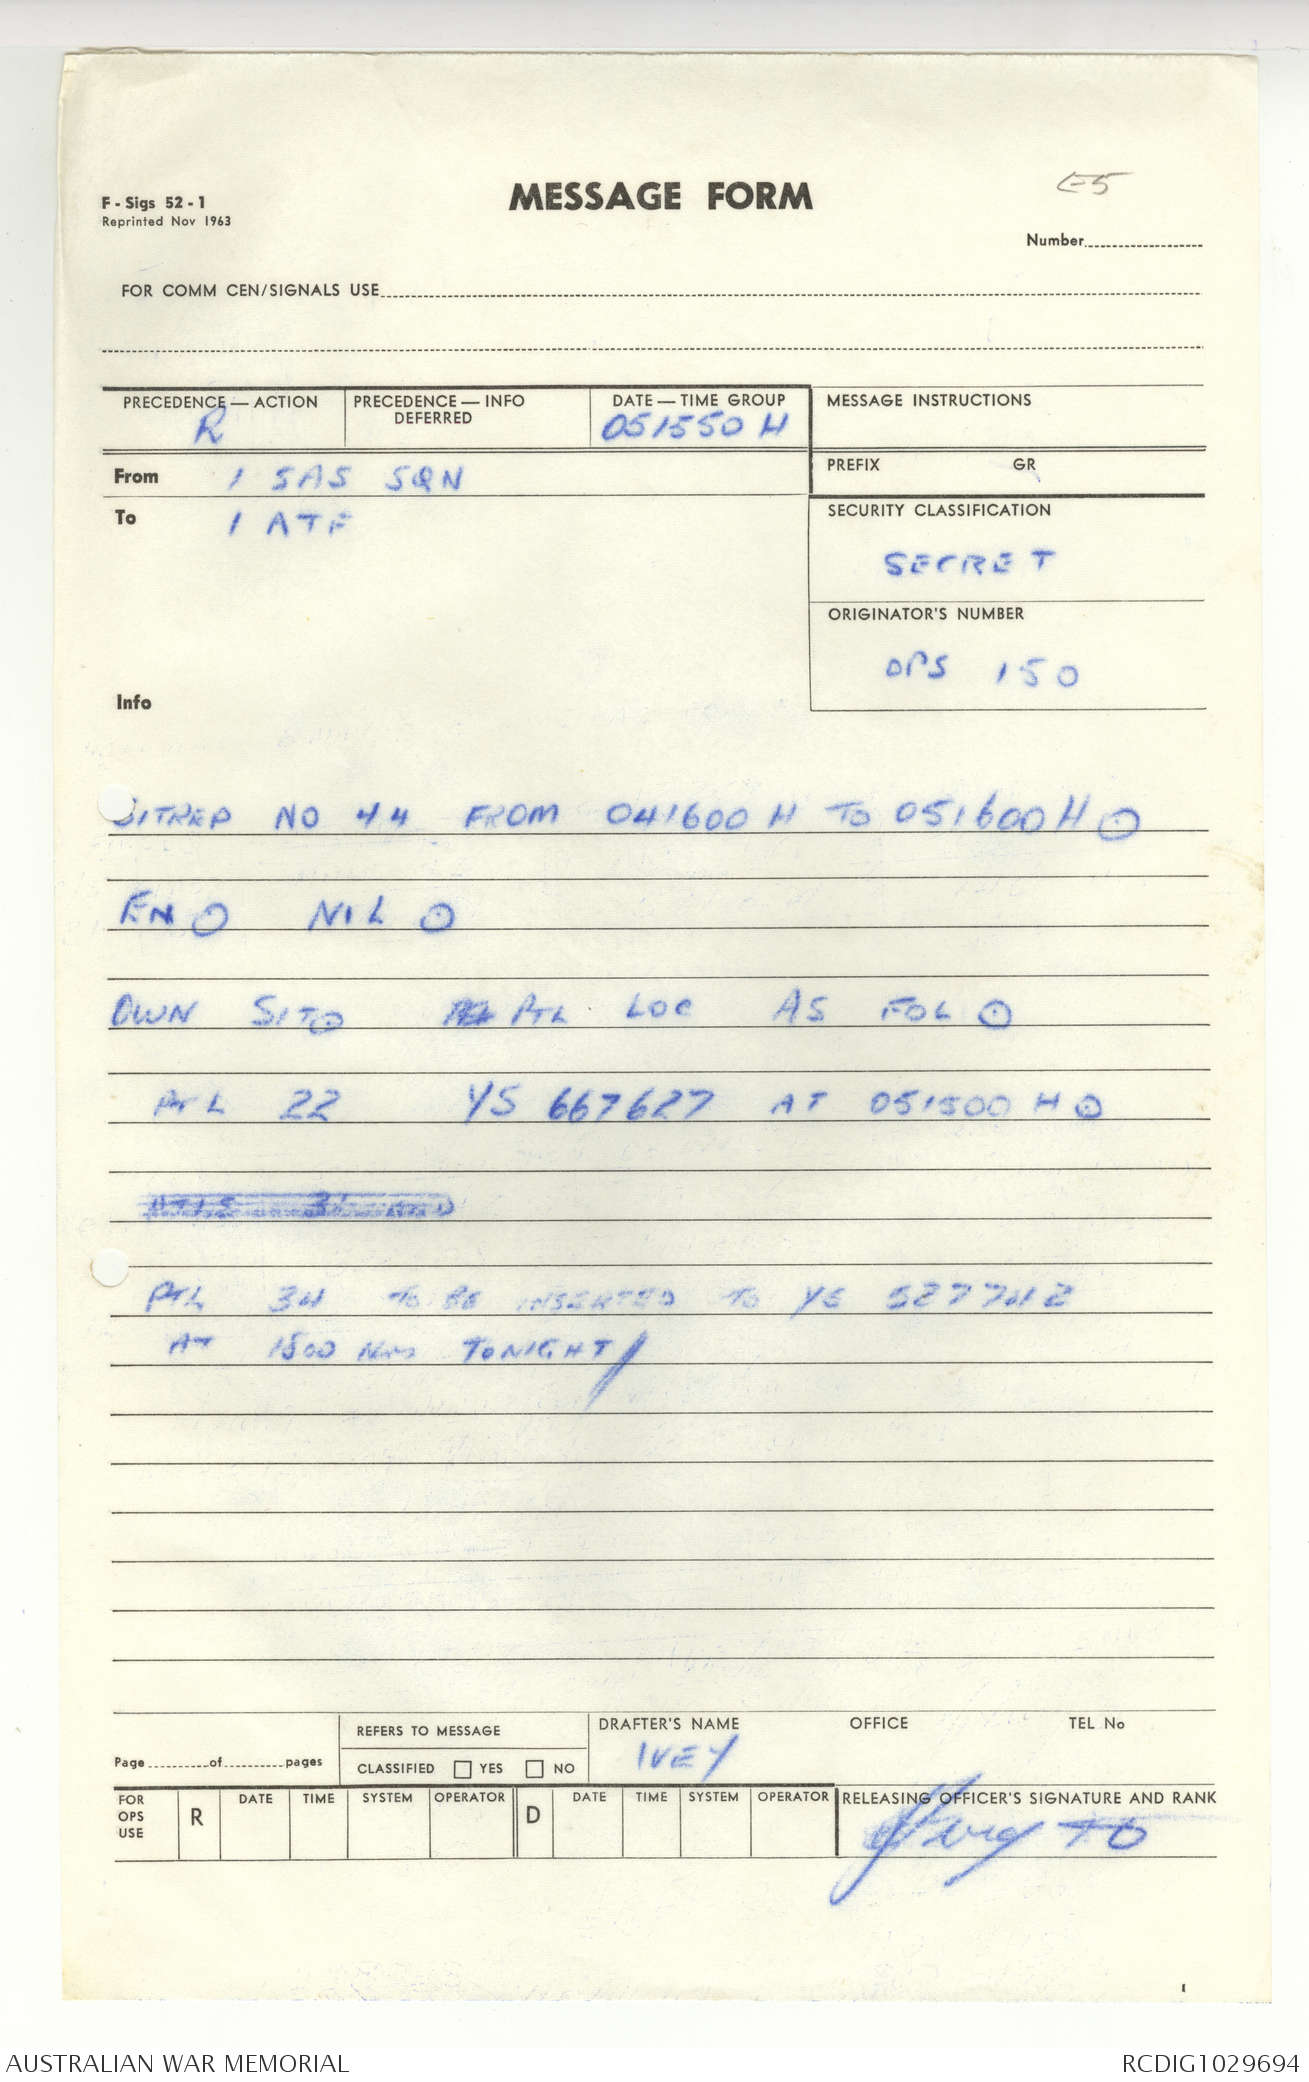 F - Sigs 52 - 1
Reprinted Nov 1963
MESSAGE FORM
E5
Number
FOR COMM CEN/SIGNALS USE
PRECEDENCE — ACTION
R
PRECEDENCE — INFO
DEFERRED
DATE — TIME GROUP
051550 H
MESSAGE INSTRUCTIONS
From 1 SAS SQN
PREFIX GR
To 1 ATF
SECURITY CLASSIFICATION
SECRET
ORIGINATOR'S NUMBER
OPS 150
Info
SITREP NO 44 FROM 041600 H TO 051600 H ⊙
EN ⊙ NIL ⊙
OWN SIT ⊙ PTL LOC AS FOL ⊙
PTL 22 YS 667627 AT 051500 H ⊙
PTL 34 TO BE INSERTED TO YS 527742
AT 1500 TONIGHT/
Page of pages
REFERS TO MESSAGE
CLASSIFIED YES NO
DRAFTER'S NAME
IVEY
OFFICE
TEL No
FOR
OPS
USE
R
DATE TIME SYSTEM OPERATOR
D
DATE TIME SYSTEM OPERATOR
RELEASING OFFICER'S SIGNATURE AND RANK
AUSTRALIAN WAR MEMORIAL
RCDIG1029694